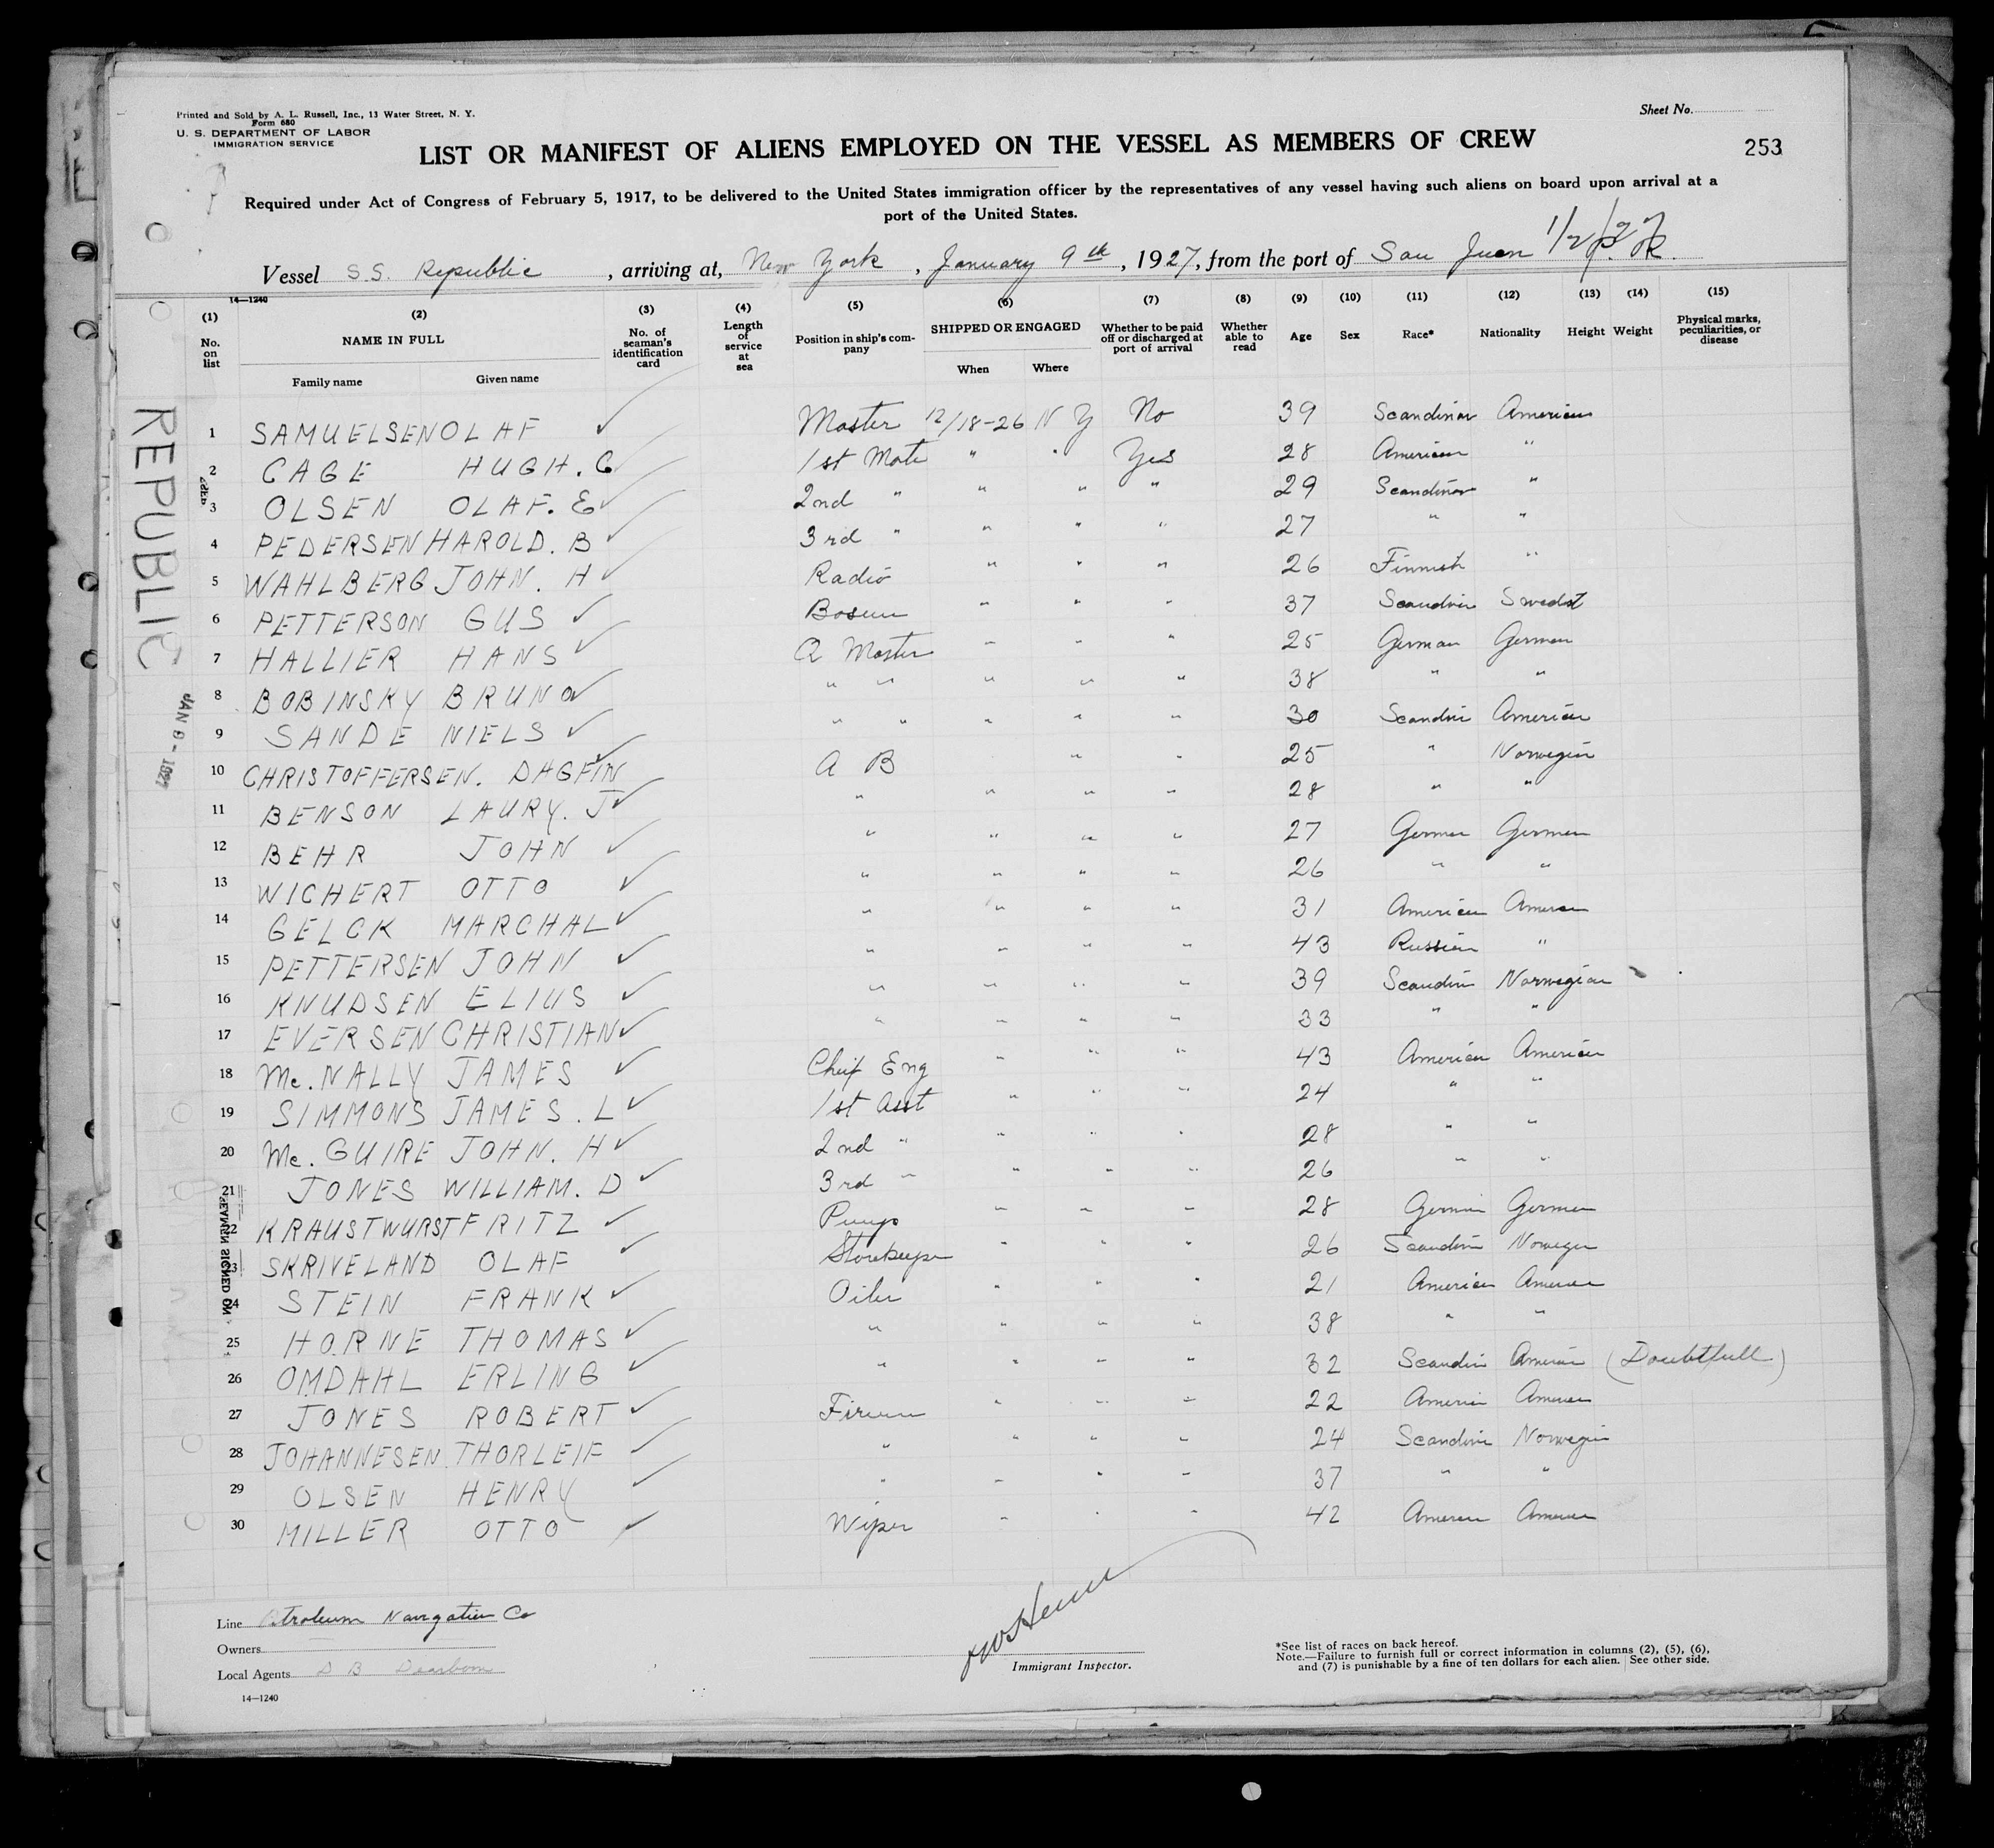 Printed and Sold by A. L. Russell, Inc., 13 Water Street, N. Y.
Form 680
U. S. DEPARTMENT OF LABOR
IMMIGRATION SERVICE
Sheet No.
LIST OR MANIFEST OF ALIENS EMPLOYED ON THE VESSEL AS MEMBERS OF CREW
253
Required under Act of Congress of February 5, 1917, to be delivered to the United States immigration officer by the representatives of any vessel having such aliens on board upon arrival at a
port of the United States.
Vessel S.S. Republic, arriving at, New York, January 9th, 1927, from the port of San Juan P. R. 1/2/27
14—1240
(1) No. on list (2) NAME IN FULL Family name Given name (3) No. of seaman's identification card (4) Length of service at sea (5) Position in ship's company (6) SHIPPED OR ENGAGED When Where (7) Whether to be paid off or discharged at port of arrival (8) Whether able to read (9) Age (10) Sex (11) Race* (12) Nationality (13) Height (14) Weight (15) Physical marks, peculiarities, or disease
REPUBLIC
JAN 9 - 1927
1 SAMUELSEN OLAF ✓ Master 12/18-26 N Y No 39 Scandinav American
2 CAGE HUGH. C ✓ 1st Mate " " Yes 28 American "
3 OLSEN OLAF. E ✓ 2nd " " " " 29 Scandinav "
4 PEDERSEN HAROLD. B ✓ 3rd " " " " 27 " "
5 WAHLBERG JOHN. H ✓ Radio " " " 26 Finnish "
6 PETTERSON GUS ✓ Bosun " " " 37 Scandin Swedst
7 HALLIER HANS ✓ Q Master " " " 25 German German
8 BOBINSKY BRUNO ✓ " " " " " 38 " "
9 SANDE NIELS ✓ " " " " " 30 Scandin American
10 CHRISTOFFERSEN. DAGFIN ✓ A B " " 25 " Norwegin
11 BENSON LAURY. J ✓ " " " " 28 " "
12 BEHR JOHN ✓ " " " " 27 German German
13 WICHERT OTTO ✓ " " " " 26 " "
14 GELCK MARCHAL ✓ " " " " 31 American American
15 PETTERSEN JOHN ✓ " " " " 43 Russian "
16 KNUDSEN ELIUS ✓ " " " " 39 Scandin Norwegian
17 EVERSEN CHRISTIAN ✓ " " " " 33 " "
18 Mc. NALLY JAMES ✓ Cheif Eng " " " 43 American American
19 SIMMONS JAMES. L ✓ 1st Asst " " " 24 " "
20 Mc. GUIRE JOHN. H ✓ 2nd " " " " 28 " "
21 JONES WILLIAM. D ✓ 3rd " " " " 26 " "
22 KRAUSTWURST FRITZ ✓ Pump " " " 28 German German
23 SKRIVELAND OLAF ✓ Storekeeper " " " 26 Scandin Norwegen
24 STEIN FRANK ✓ Oiler " " " 21 American American
25 HORNE THOMAS ✓ " " " " 38 " "
26 OMDAHL ERLING ✓ " " " " 32 Scandin American (Doubtfull)
27 JONES ROBERT ✓ Firemn " " " 22 American American
28 JOHANNESEN THORLEIF ✓ " " " " 24 Scandin Norwegin
29 OLSEN HENRY ✓ " " " " 37 " "
30 MILLER OTTO ✓ Wiper " " " 42 American American
SEAMEN SIGNED ON
Line Petroleum Navigation Co
Owners
Local Agents D B Dearborn
14—1240
Immigrant Inspector.
*See list of races on back hereof.
Note.—Failure to furnish full or correct information in columns (2), (5), (6),
and (7) is punishable by a fine of ten dollars for each alien. See other side.